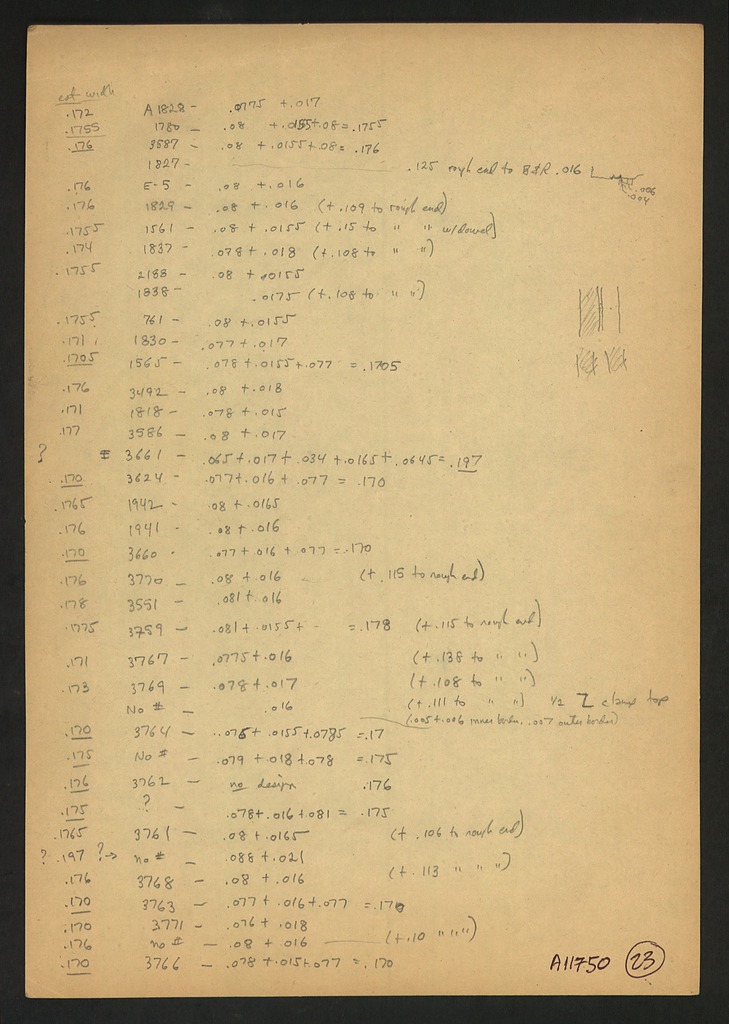 est width
.172 A1828 - .0775 +.017
.1755 1780 - .08 +.0155+.08=.1755
.176 3587 - .08 +.0155+.08= .176
1827- .125 rough end to B&R .016
.006
.004
.176 E-5 - .08 +.016
.176 1829 - .08 + .016 (+.109 to rough end)
.1755 1561 - .08 +.0155 (+.15 to " " w/dowel)
.174 1837 - .078 + .018 (+.108 to " ")
.1755 2188 - .08 + .0155
1838 - .0175 (+.108 to " ")
.1755 761 - .08 +.0155
.171 1830 - .077 +.017
.1705 1565 - .078 +.0155+.077 =.1705
.176 3492 - .08 +.018
.171 1818 - .078 +.015
.177 3586 - .08 +.017
? 3661 - .065+.017+.034+.0165+.0645=.197
.170 3624 - .077+.016+.077 = .170
.1765 1942 - .08 +.0165
.176 1941 - .08 +.016
.170 3660 - .077+.016+.077=.170
.176 3770 - .08 +.016 (+.115 to rough end)
.178 3551 - .081 +.016
.1775 3759 - .081+.0155+ - =.178 (+.115 to rough end)
.171 3767 - .0775+.016 (+.138 to " ")
.173 3769 - .078+.017 (+.108 to " ")
No # - .016 (+.111 to " ") 1/2 Z clamp top
(.005+.006 inner border, .007 outer border)
.170 3764 - .076+.0155+.0785 =.17
.175 No # - .079 +.018+.078 =.175
.176 3762 - no design .176
.175 ? - .078+.016+.081 = .175
.1765 3761 - .08+.0165 (+.106 to rough end)
? .197 ?→ no # - .088+.021
.176 3768 - .08 +.016 (+.113 " " ")
.170 3763 - .077 +.016+.077 =.170
.170 3771 - .076 +.018
.176 no # - .08 +.016 (+.10 " " ")
.170 3766 - .078 +.015+.077 =.170
A11750 23